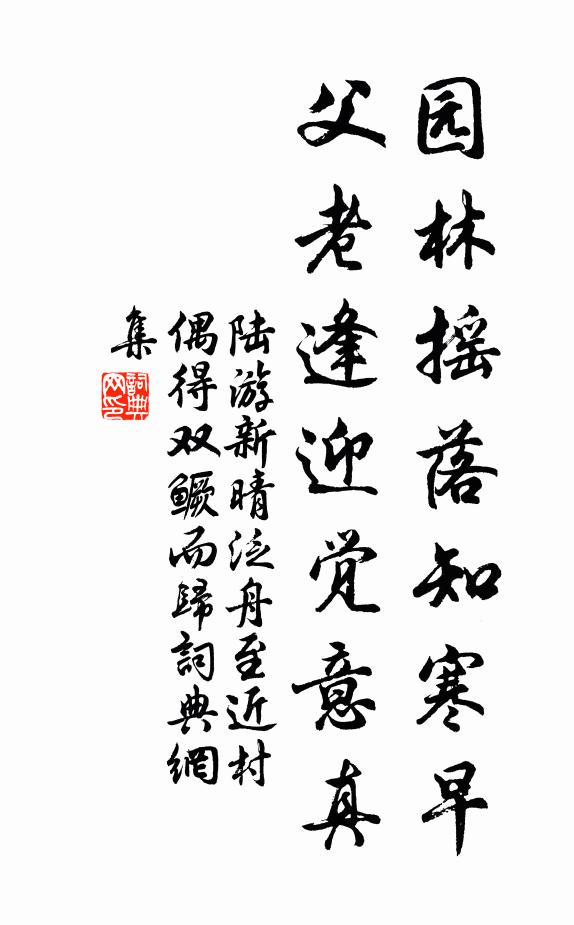 园林摇落知寒早
父老逢迎觉意真
陆游新晴泛舟至近村
偶得双鳜而歸詞典網
集
詞典网印